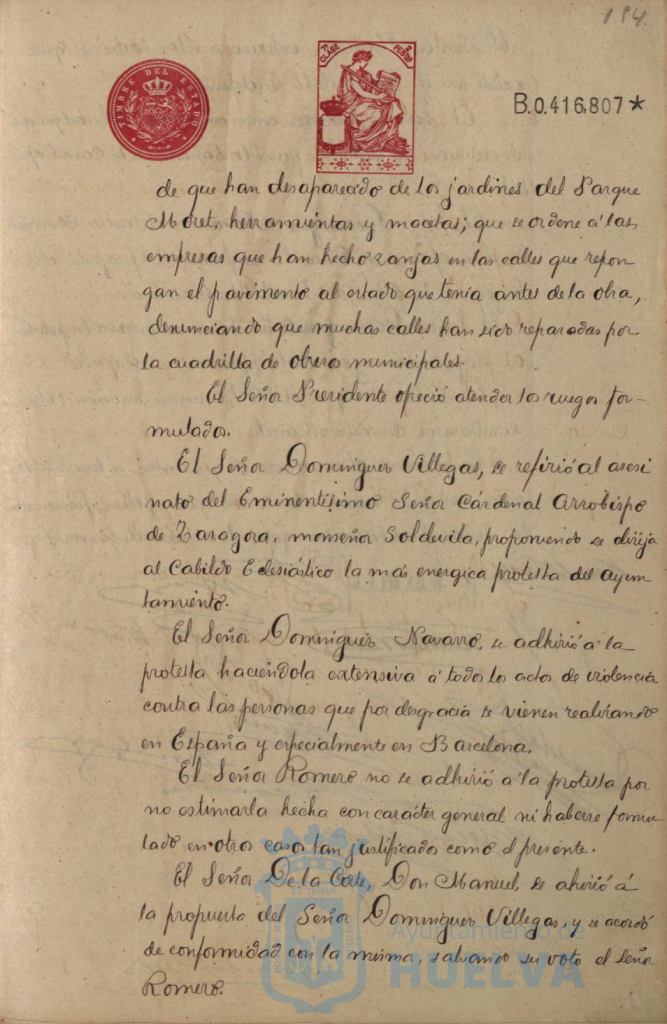 184.
TIMBRE DEL ESTADO
7ª CLASE
PESETAS
B.0.416,807*
de que han desaparecido de los jardines del Parque
Moret, herramientas y macetas; que se ordene á las
empresas que han hecho zanjas en las calles que repon
gan el pavimento al estado que tenia antes de la obra,
denunciando que muchas calles han sido reparadas por
la cuadrilla de obreros municipales.
El Señor Presidente ofreció atender los ruegos for-
mulados.
El Señor Dominguez Villegas, se refirió al asesi
nato del Eminentisimo Señor Cárdenal Arzobispo
de Zaragoza, monseñor Soldevila, proponiendo se dirija
al Cabildo Eclesiástico la más energica protesta del ayun
tamiento.
El Señor Dominguez Navarro, se adhirió á la
protesta haciéndola extensiva á todos los actos de violencia
contra las personas que por desgracia se vienen realizando
en España y especialmente en Barcelona.
El Señor Romero no se adhirió á la protesta por
no estimarla hecha con carácter general ni haberse formu
lado en otros casos tan justificados como el presente.
El Señor De la Corte, Don Manuel, se ahirió á
la propuesta del Señor Dominguez Villegas, y se acordó
de conformidad con la misma, salvando su voto el Señor
Romero.
Ayuntamiento de
HUELVA